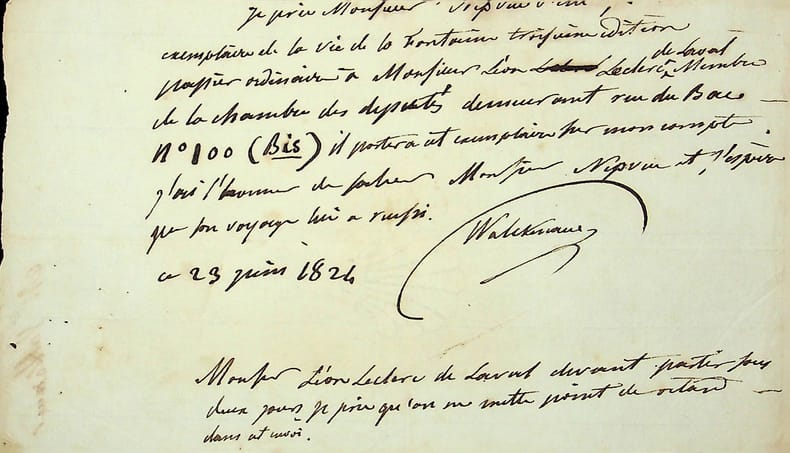 Je prie Monsieur Nepveu
exemplaire de la vie de la Fontaine troisième édition
papier ordinaire à Monsieur Léon Leclerc de Laval Membre
de la chambre des députés demeurant rue du Bac
N° 100 (Bis) il portera cet exemplaire sur mon compte.
j'ai l'honneur de saluer Monsieur Nepveu et j'espère
que son voyage lui a reussi.
Walckenaer
ce 23 juin 1824
Monsieur Léon Leclerc de Laval devant partir sous
deux jours je prie qu'on ne mette point de retard
dans cet envoi.